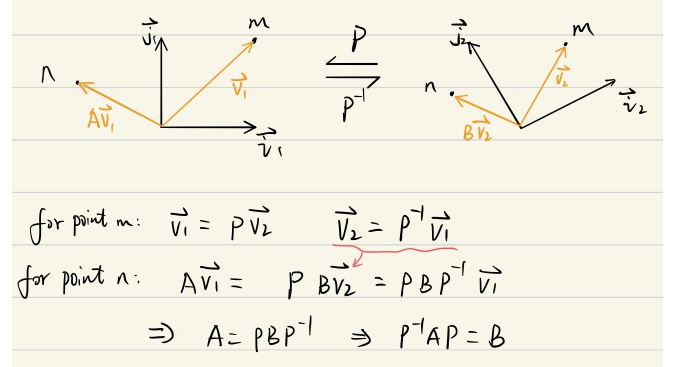 j⃗₁ m P j⃗₂ m
n v⃗₁ P⁻¹ n v⃗₂
Av⃗₁ i⃗₁ Bv⃗₂ i⃗₂
for point m: v⃗₁ = Pv⃗₂ v⃗₂ = P⁻¹v⃗₁
for point n: Av⃗₁ = P Bv⃗₂ = PBP⁻¹ v⃗₁
⇒ A = PBP⁻¹ ⇒ P⁻¹AP = B